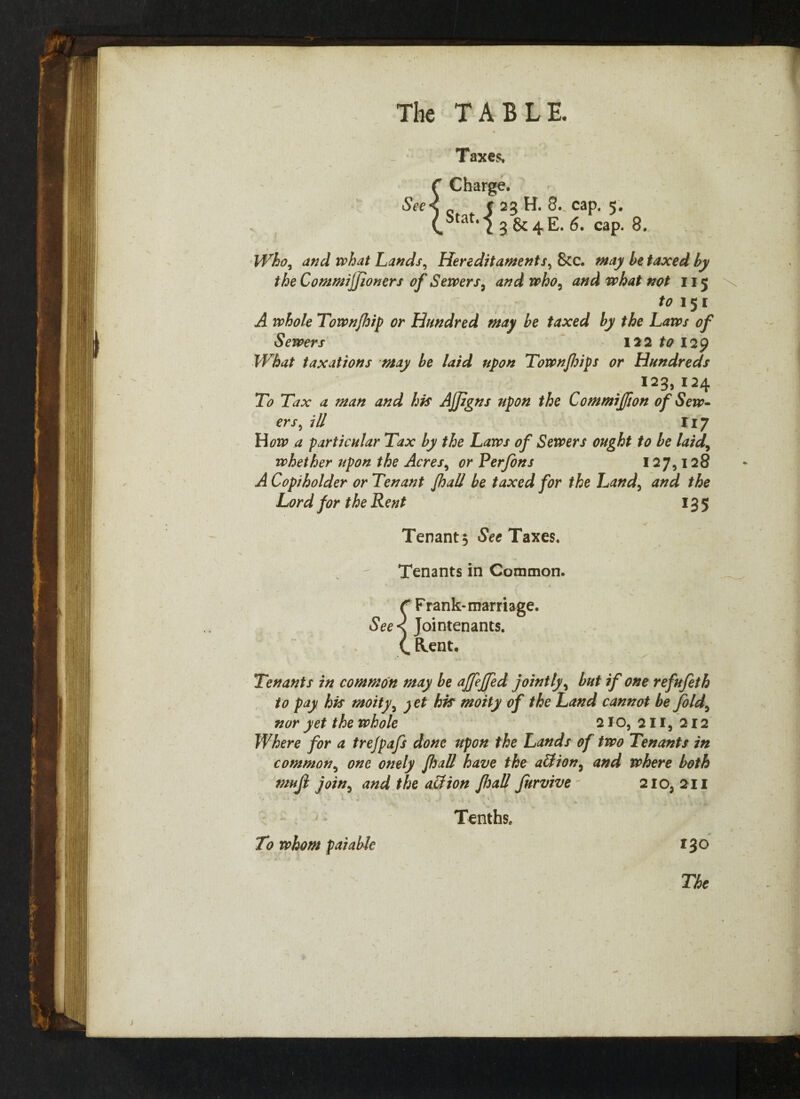 The TABLE.
Taxes.
See { Charge.
Stat. { 23 H. 8. cap. 5.
3 & 4 E. 6. cap. 8.
Who, and what Lands, Hereditaments, &c. may be taxed by
the Commiſſioners of Sewers, and who, and what not 115
to 151
A whole Townſhip or Hundred may be taxed by the Laws of
Sewers 122 to 129
What taxations may be laid upon Townſhips or Hundreds
123, 124
To Tax a man and his Aſſigns upon the Commiſſion of Sew-
ers, ill 117
How a particular Tax by the Laws of Sewers ought to be laid,
whether upon the Acres, or Perſons 127, 128
A Copiholder or Tenant ſhall be taxed for the Land, and the
Lord for the Rent 135
Tenant; See Taxes.
Tenants in Common.
See { Frank-marriage.
Jointenants.
Rent.
Tenants in common may be aſſeſſed jointly, but if one refuſeth
to pay his moity, yet his moity of the Land cannot be ſold,
nor yet the whole 210, 211, 212
Where for a treſpaſs done upon the Lands of two Tenants in
common, one onely ſhall have the action, and where both
muſt join, and the action ſhall ſurvive 210, 211
Tenths.
To whom paiable 130
The